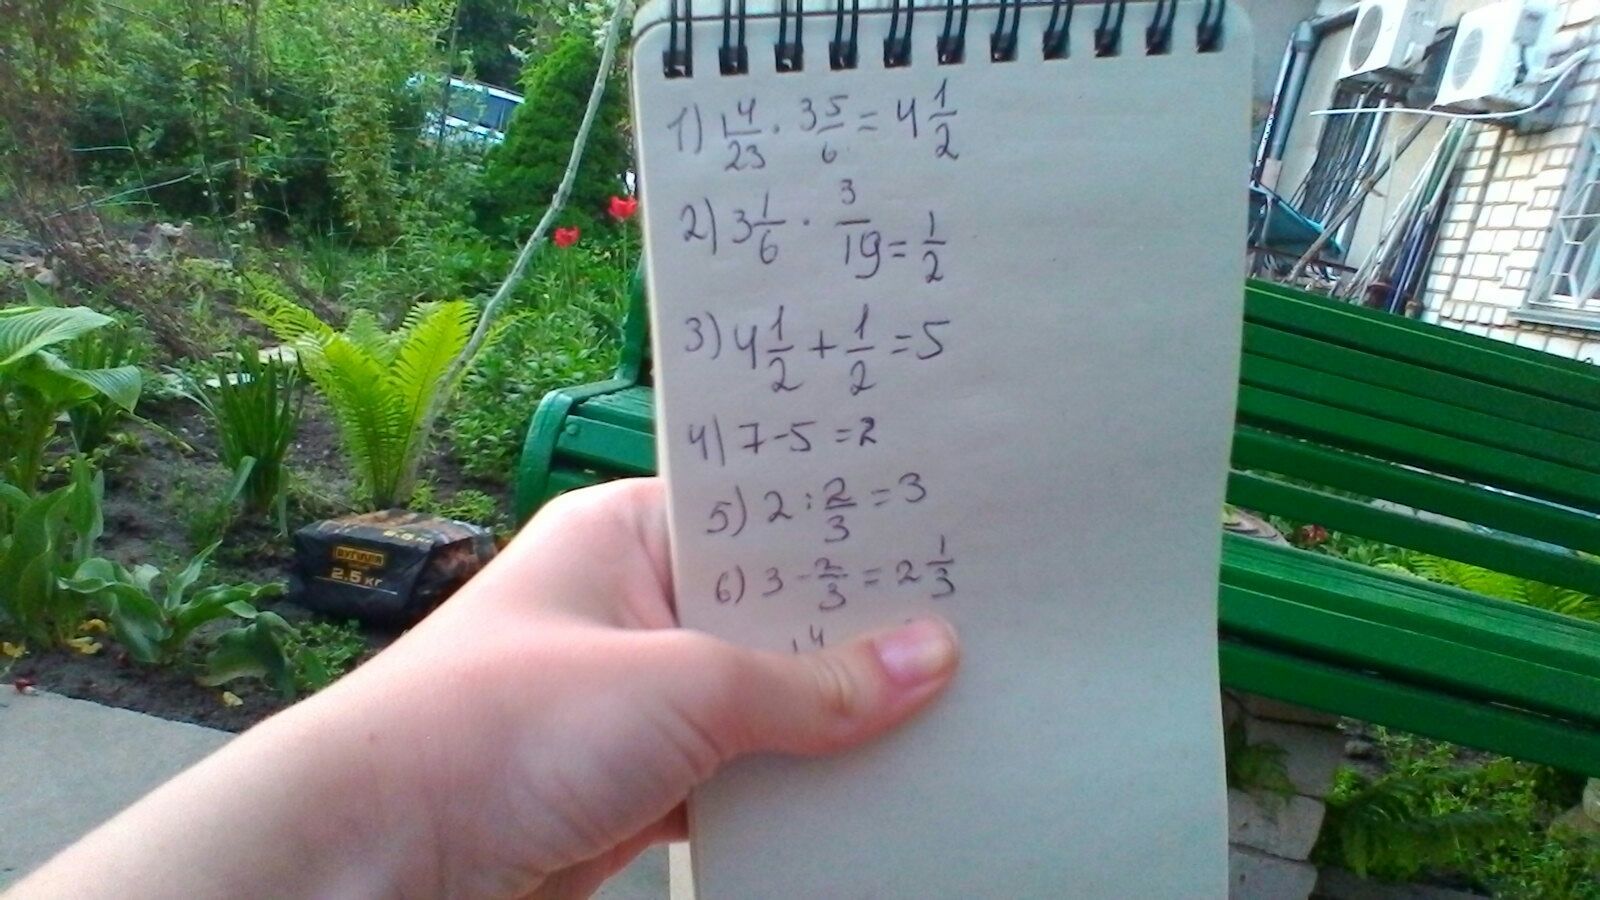 1) 1 4/23 · 3 5/6 = 4 1/2
2) 3 1/6 · 3/19 = 1/2
3) 4 1/2 + 1/2 = 5
4) 7 - 5 = 2
5) 2 : 2/3 = 3
6) 3 - 2/3 = 2 1/3
2.5 кг